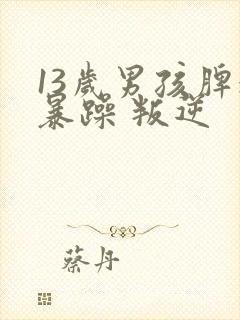 13歲男孩脾
暴躁 叛逆
蔡丹